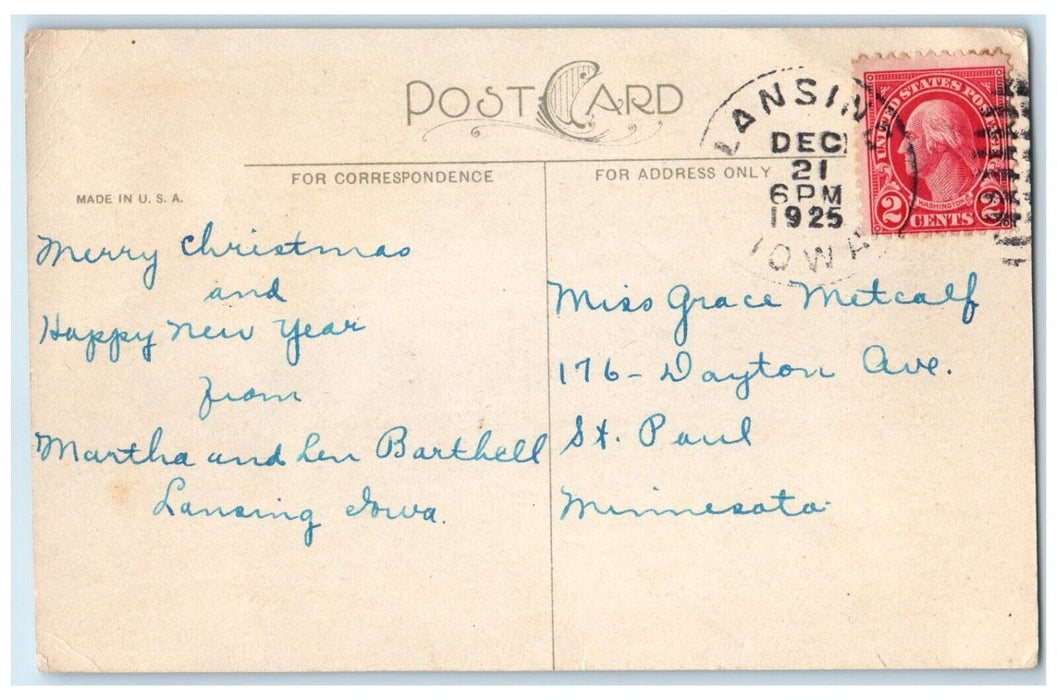 POST CARD
FOR CORRESPONDENCE
FOR ADDRESS ONLY
MADE IN U. S. A.
LANSING
DEC
21
6 PM
1925
IOWA
UNITED STATES POSTAGE
WASHINGTON
2 CENTS 2
Merry Christmas
and
Happy New Year
from
Martha and Len Barthell
Lansing Iowa.
Miss Grace Metcalf
176- Dayton Ave.
St. Paul
Minnesota.